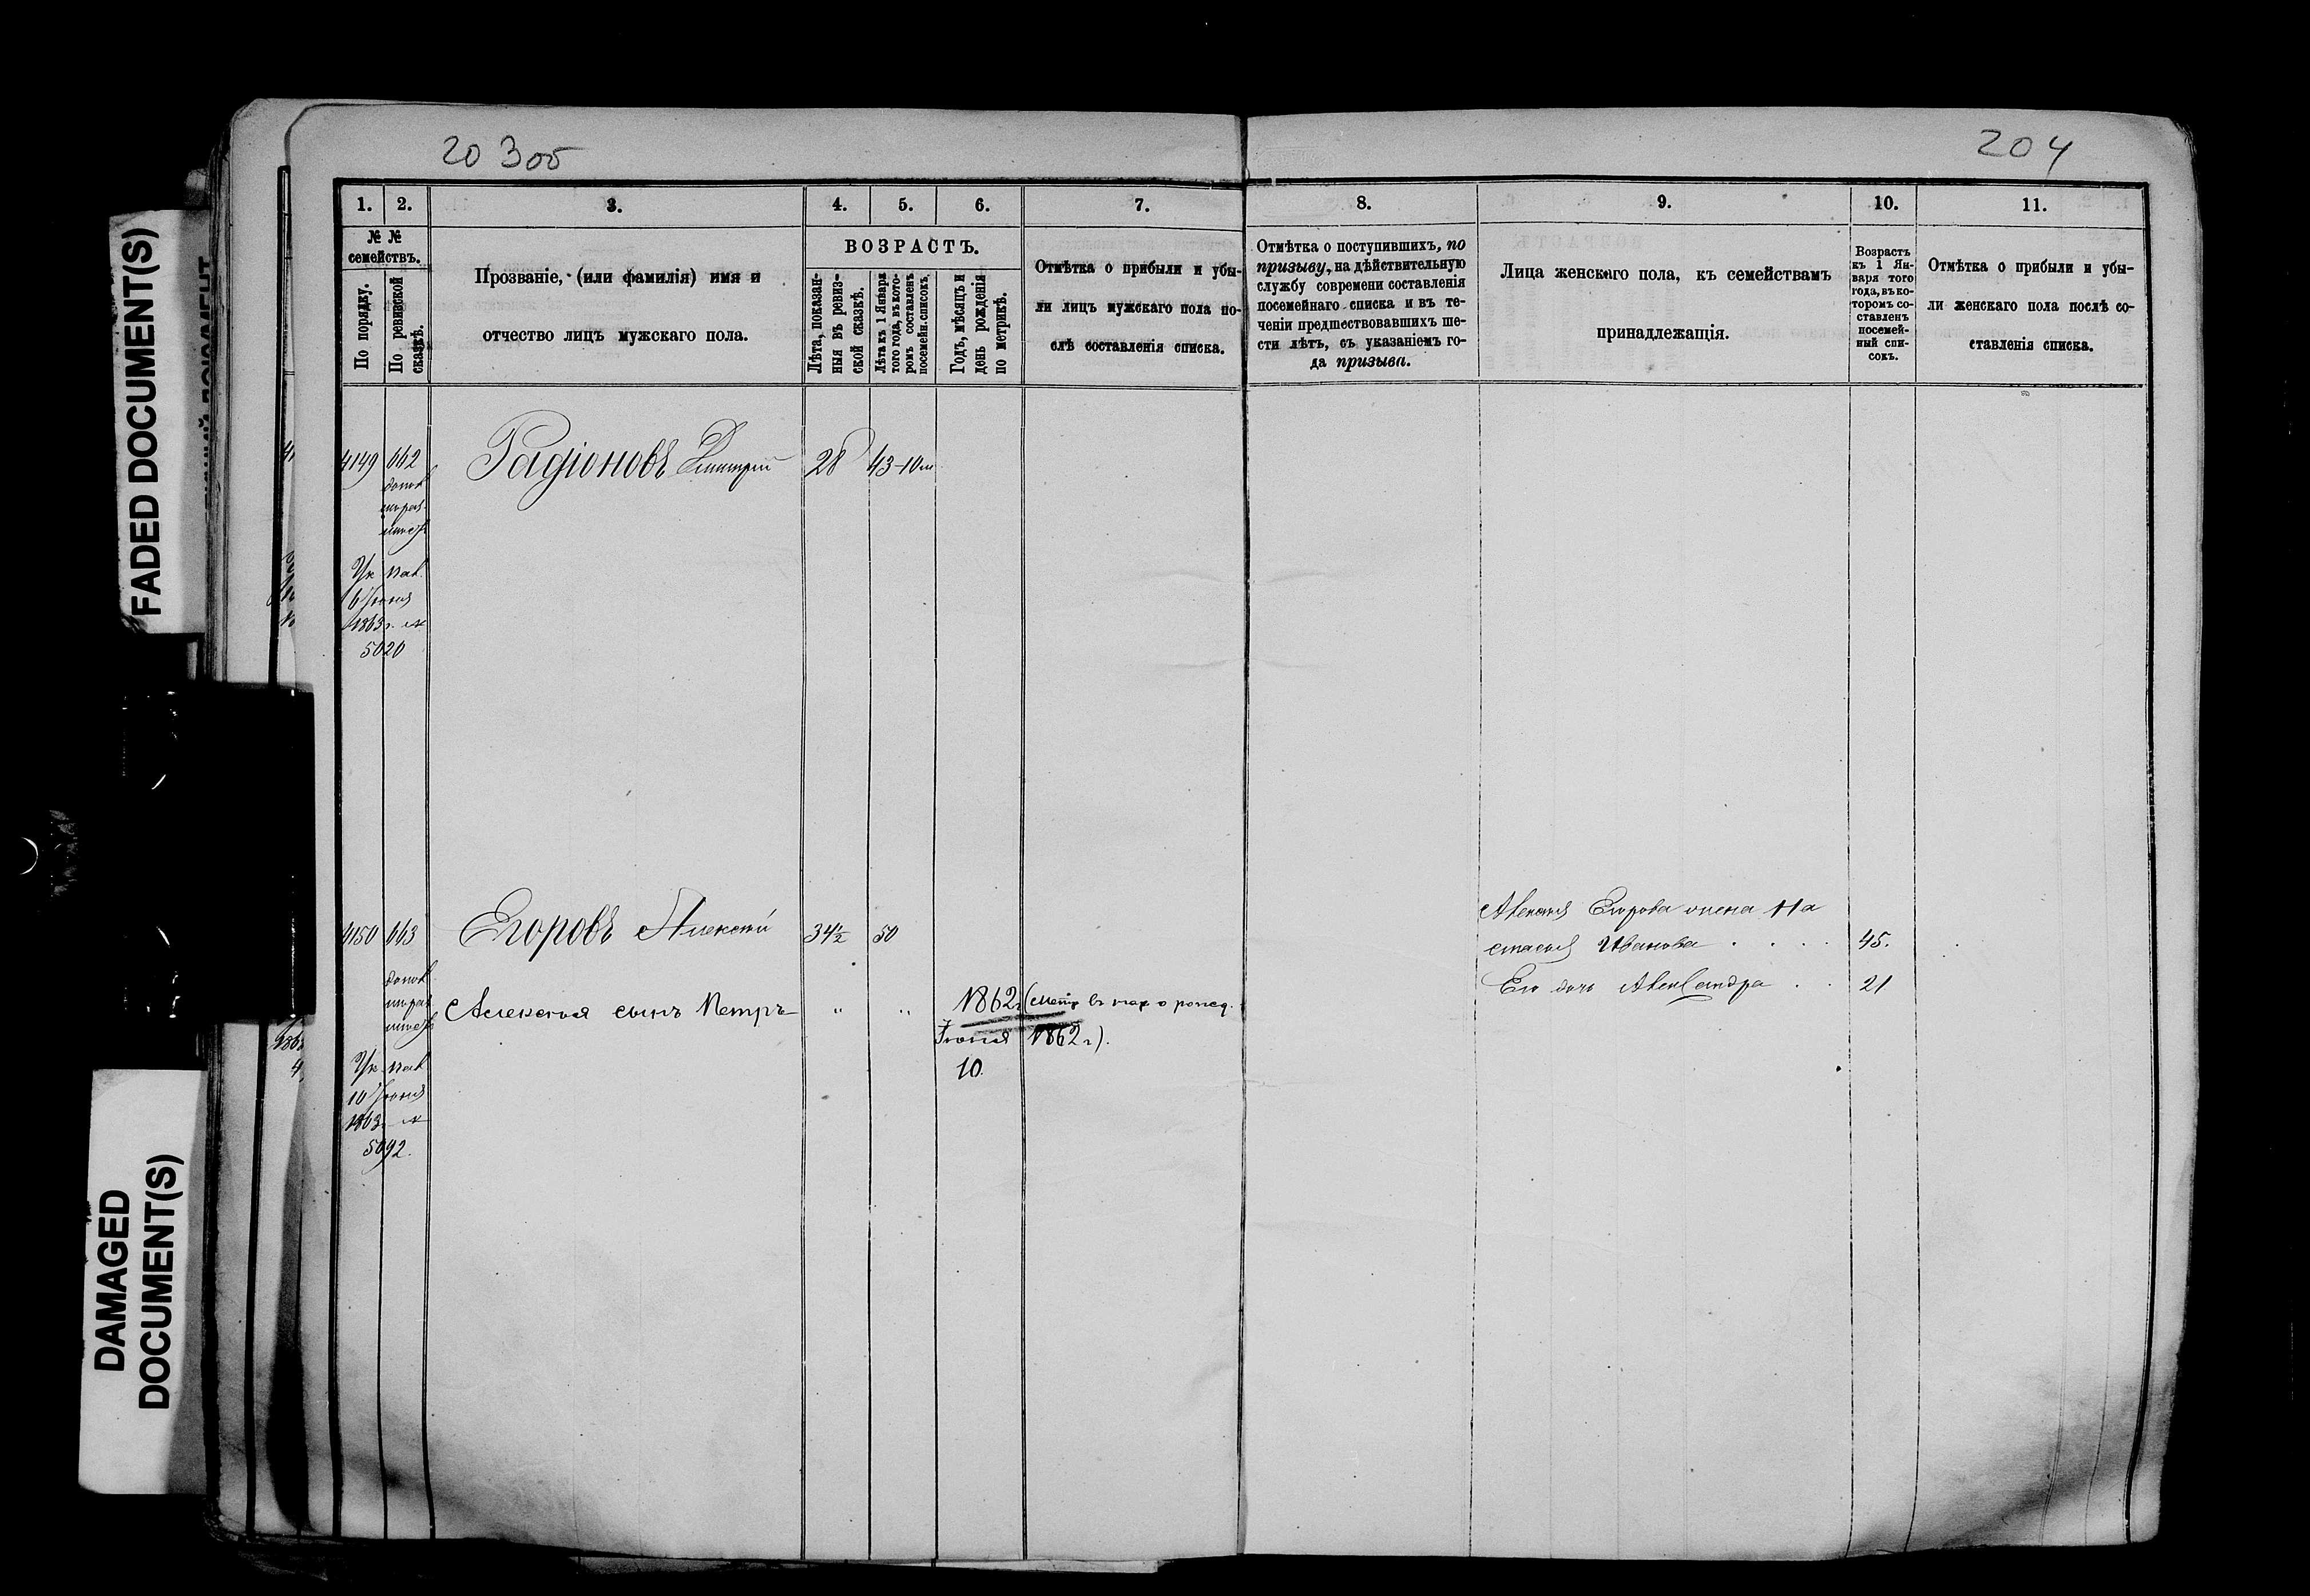 FADED DOCUMENT(S)
DAMAGED
DOCUMENT(S)
20 3об
204
1. 2. 3. 4. 5. 6. 7. 8. 9. 10. 11.
№ №
семействъ.
По порядку.
По ревизской
сказкѣ.
Прозваніе, (или фамилія) имя и
отчество лицъ мужскаго пола.
ВОЗРАСТЪ.
Лѣта, показан-
ныя въ ревиз-
ской сказкѣ.
Лѣта къ 1 Января
того года, въ кото-
ромъ составленъ
посемейн. списокъ.
Годъ, мѣсяцъ и
день рожденія
по метрикѣ.
Отмѣтка о прибыли и убы-
ли лицъ мужскаго пола по-
слѣ составленія списка.
Отмѣтка о поступившихъ, по
призыву, на дѣйствительную
службу современи составленія
посемейнаго списка и въ те-
ченіи предшествовавшихъ ше-
сти лѣтъ, съ указаніемъ го-
да призыва.
Лица женскаго пола, къ семействамъ
принадлежащія.
Возрастъ
къ 1 Ян-
варя того
года, въ ко-
торомъ со-
ставленъ
посемей-
ный спи-
сокъ.
Отмѣтка о прибыли и убы-
ли женскаго пола послѣ со-
ставленія списка.
4149 662 Радіоновъ Дмитрій 28 43-10м
Ук. пал.
6 Іюня
1863г. №
5020
4150 663 Егоровъ Алексѣй 34½ 50
Алексѣя сынъ Петръ " " 1862г.
Іюня
10.
1862 г).
Ук. пал.
10 Іюня
1863г. №
5092.
Алексѣя Егорова жена На
стасья Иванова . . . . 45.
Его дочь Александра . . 21